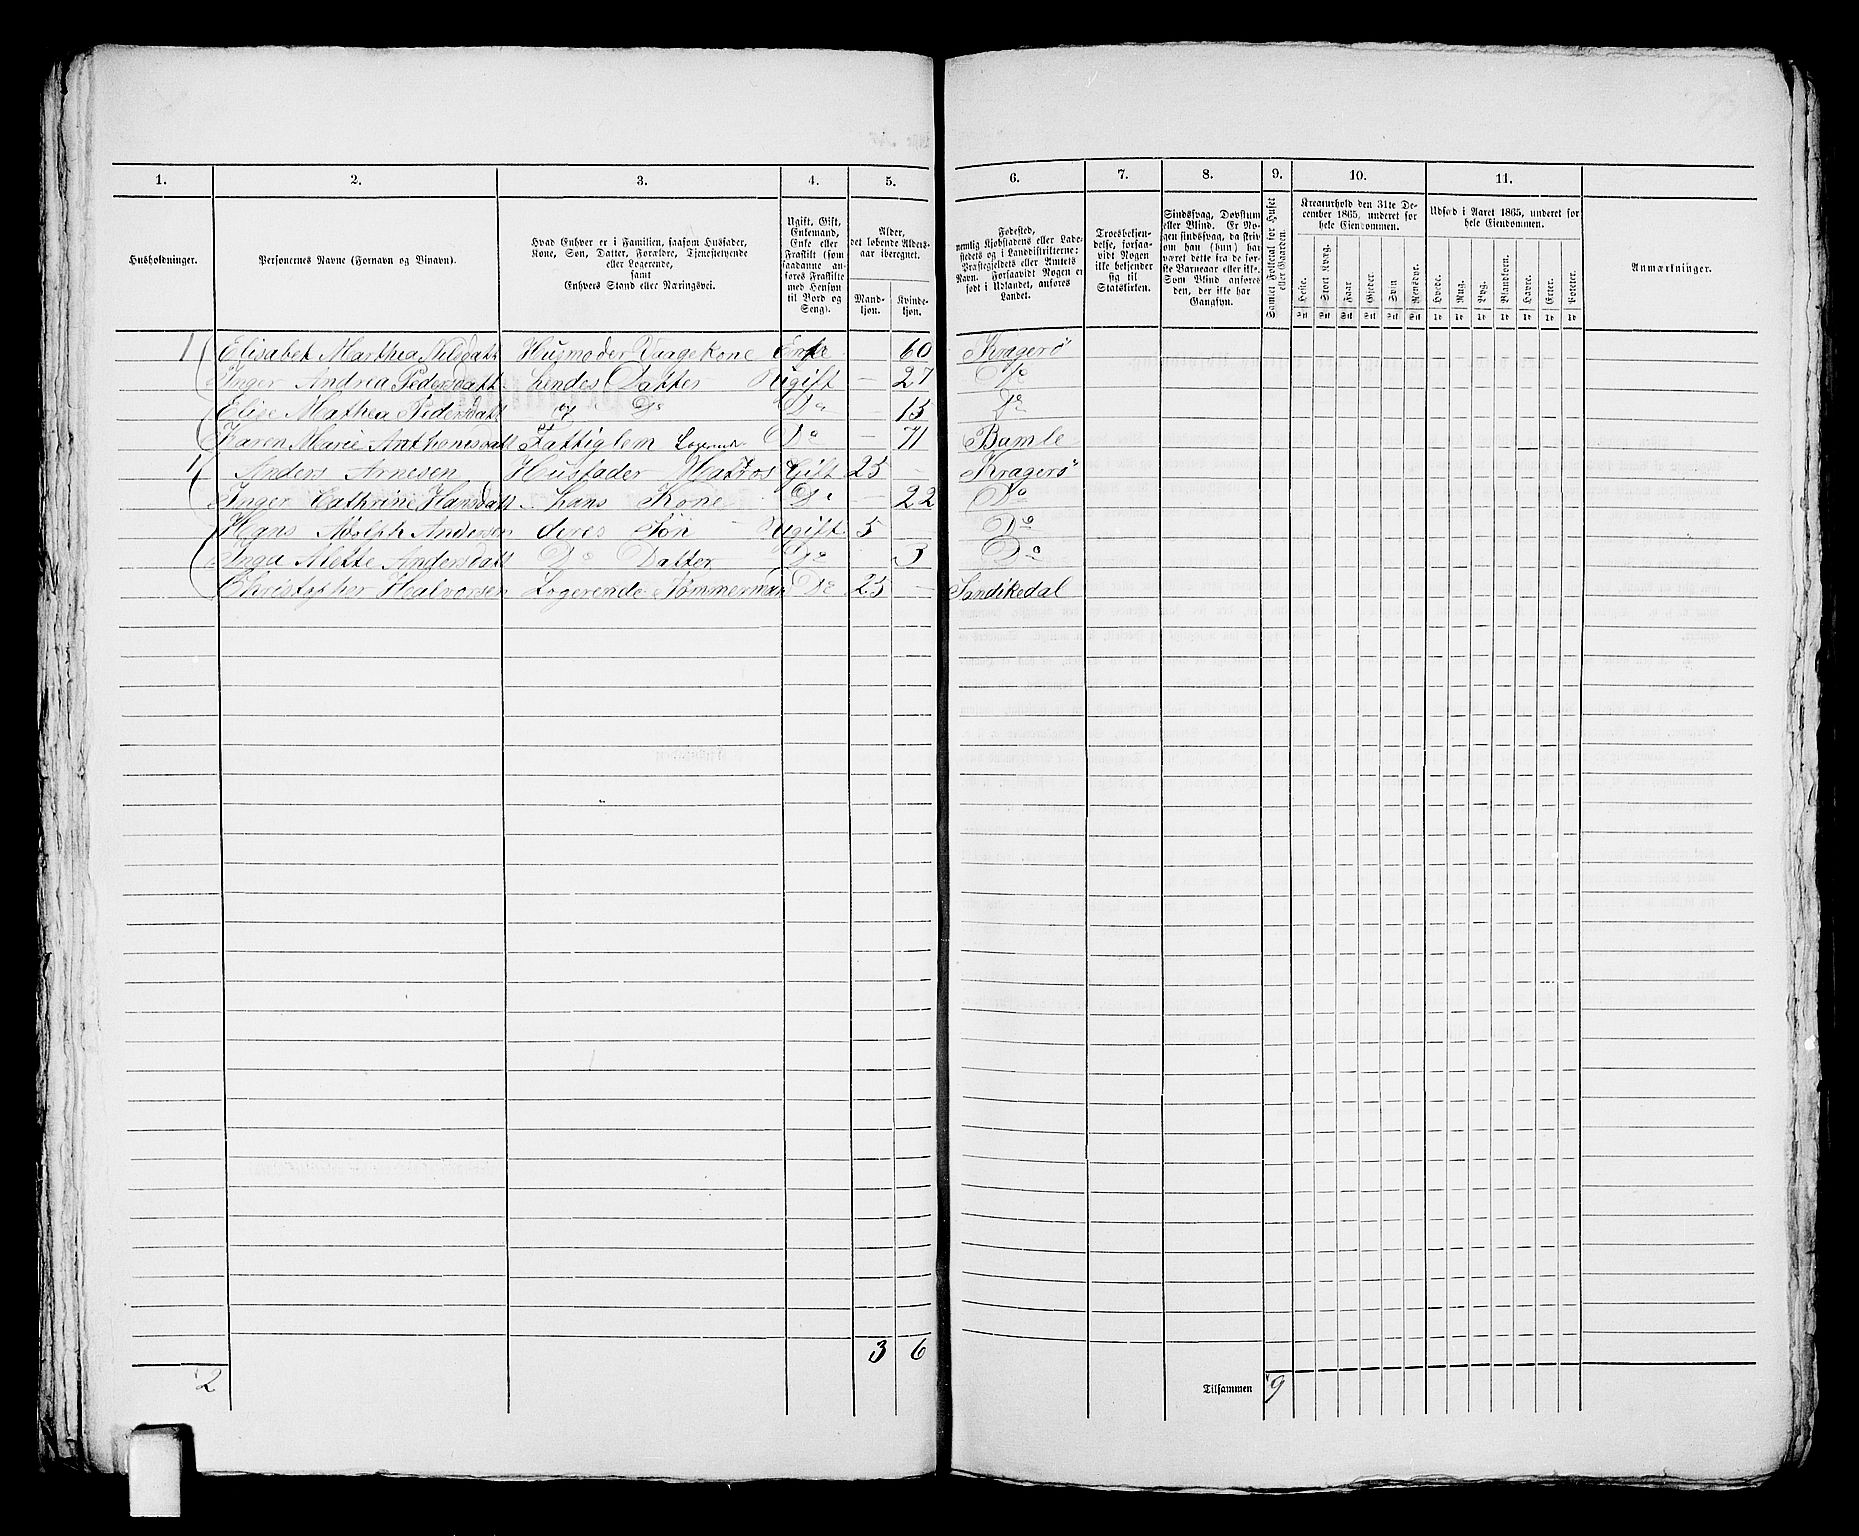 1. 2. 3. 4. 5. 6. 7. 8. 9. 10. 11.
Husholdninger.
Personernes Navne (Fornavn og Binavn).
Hvad Enhver er i Familien, saasom Husfader,
Kone, Søn, Datter, Forældre, Tjenestetyende
eller Logerende,
samt
Enhvers Stand eller Næringsvei.
Ugift, Gift,
Enkemand,
Enke eller
Fraskilt (som
saadanne an-
føres Fraskilte
med Hensyn
til Bord og
Seng).
Alder,
det løbende Alders-
aar iberegnet.
Mand-
kjøn.
Kvinde-
kjøn.
Fødested,
nemlig Kjøbstadens eller Lade-
stedets og i Landdistrikterne:
Præstegjeldets eller Amtets
Navn. Forsaavidt Nogen er
født i Udlandet, anføres
Landet.
Troesbekjen-
delse, forsaa-
vidt Nogen
ikke bekjender
sig til
Statskirken.
Sindssvag, Døvstum
eller Blind. Er No-
gen sindssvag, da skriv
om han (hun) har
været dette fra de før-
ste Barneaar eller ikke.
Som Blind anføres
den, der ikke har
Gangsyn.
Samlet Folketal for Huset
eller Gaarden.
Kreaturhold den 31te De-
cember 1865, underet for
hele Eiendommen.
Heste. Stort Kvæg. Faar. Gjeder. Svin. Rensdyr.
Udsæd i Aaret 1865, underet for
hele Eiendommen.
Hvede. Rug. Byg. Blandkorn. Havre. Erter. Poteter.
Anmærkninger.
1 Elisabet Marthea Nilsdatt Husmoder Vargekone Enke 60 Kragerø
Inger Andrea Pedersdatt hendes Datter Ugift — 27 Do
Elise Mathea Pedersdatt og Do Do — 13 Do
Karen Marie Anthonisdatt Fattiglem Logerende Do — 71 Bamle
1 Anders Arnesen Husfader Matros Gift 25 — Kragerø
Inger Cathrine Hansdatt hans Kone Do — 22 Do
Hans Adolph Andersen deres Søn Ugift 5 Do
Inga Alette Andersdatt Do Datter Do 3 Do
Christopher Halvorsen Logerende Tømmermand Do 25 — Sandikedal
3 6
2 Tilsammen 9